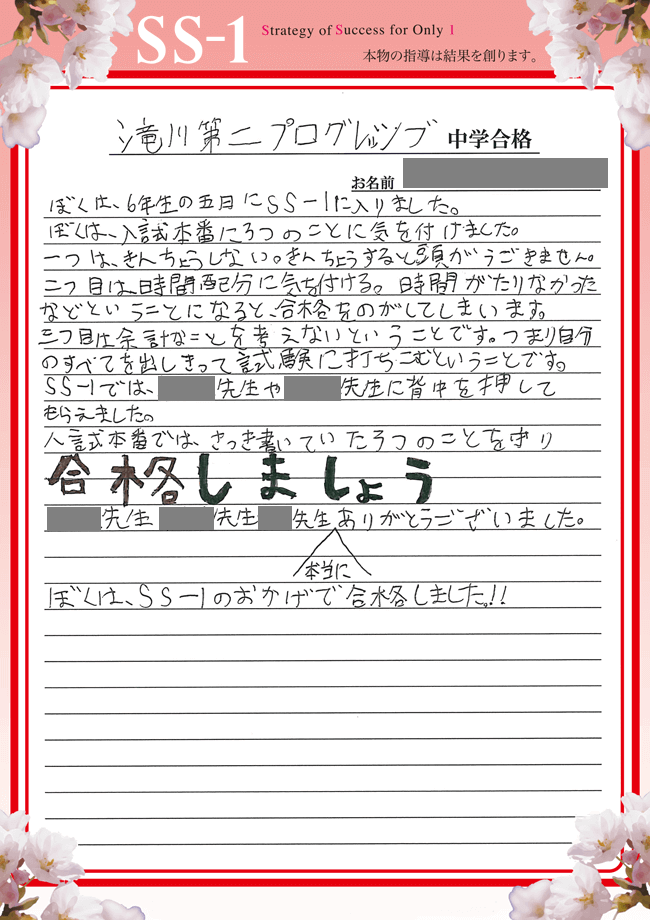 SS-1 Strategy of Success for Only 1
本物の指導は結果を創ります。
滝川第二プログレッシブ 中学合格
お名前
ぼくは、6年生の五月にSS-1に入りました。
ぼくは、入試本番に3つのことに気を付けました。
一つは、きんちょうしない。きんちょうすると頭がうごきません。
二つ目は、時間配分に気を付ける。時間がたりなかった
などということになると、合格をのがしてしまいます。
三つ目は余計なことを考えないということです。つまり自分
のすべてを出しきって試験に打ちこむということです。
SS-1では、先生や先生に背中を押して
もらえました。
入試本番では、さっき書いていた3つのことを守り
合格しましょう
先生 先生 先生ありがとうございました。
本当に
ぼくは、SS-1のおかげで合格しました。!!